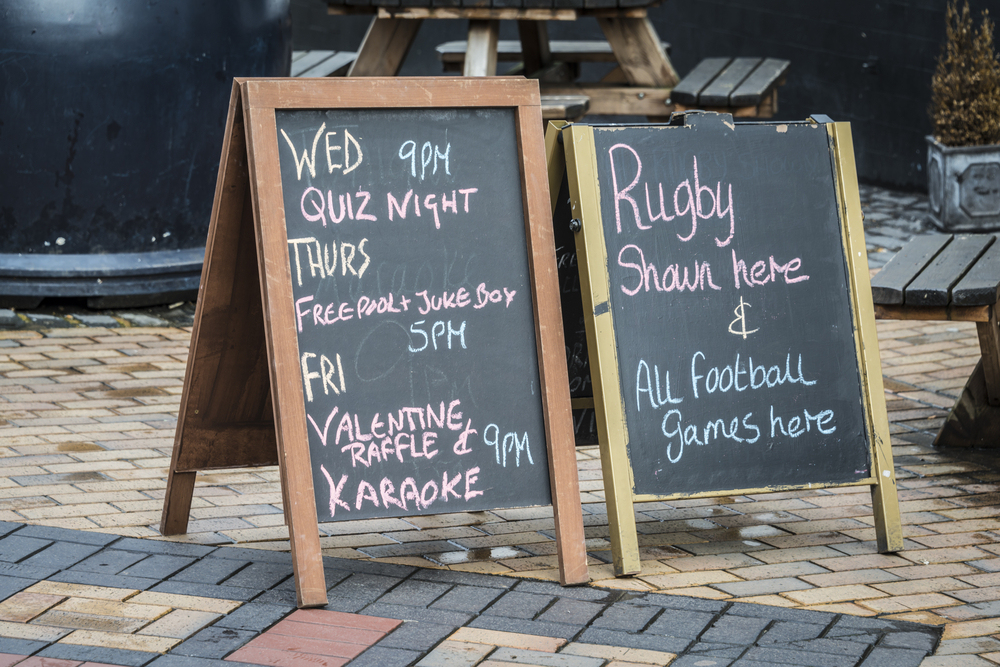 WED 9PM
QUIZ NIGHT
THURS
FREE POOL + JUKE BOX
5PM
FRI
VALENTINE
RAFFLE & 9PM
KARAOKE
Rugby
Shown here
&
All football
games here